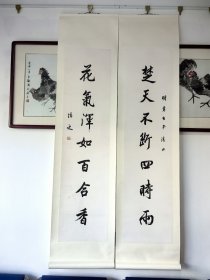 楚天不断四時雨
花氣渾如百合香